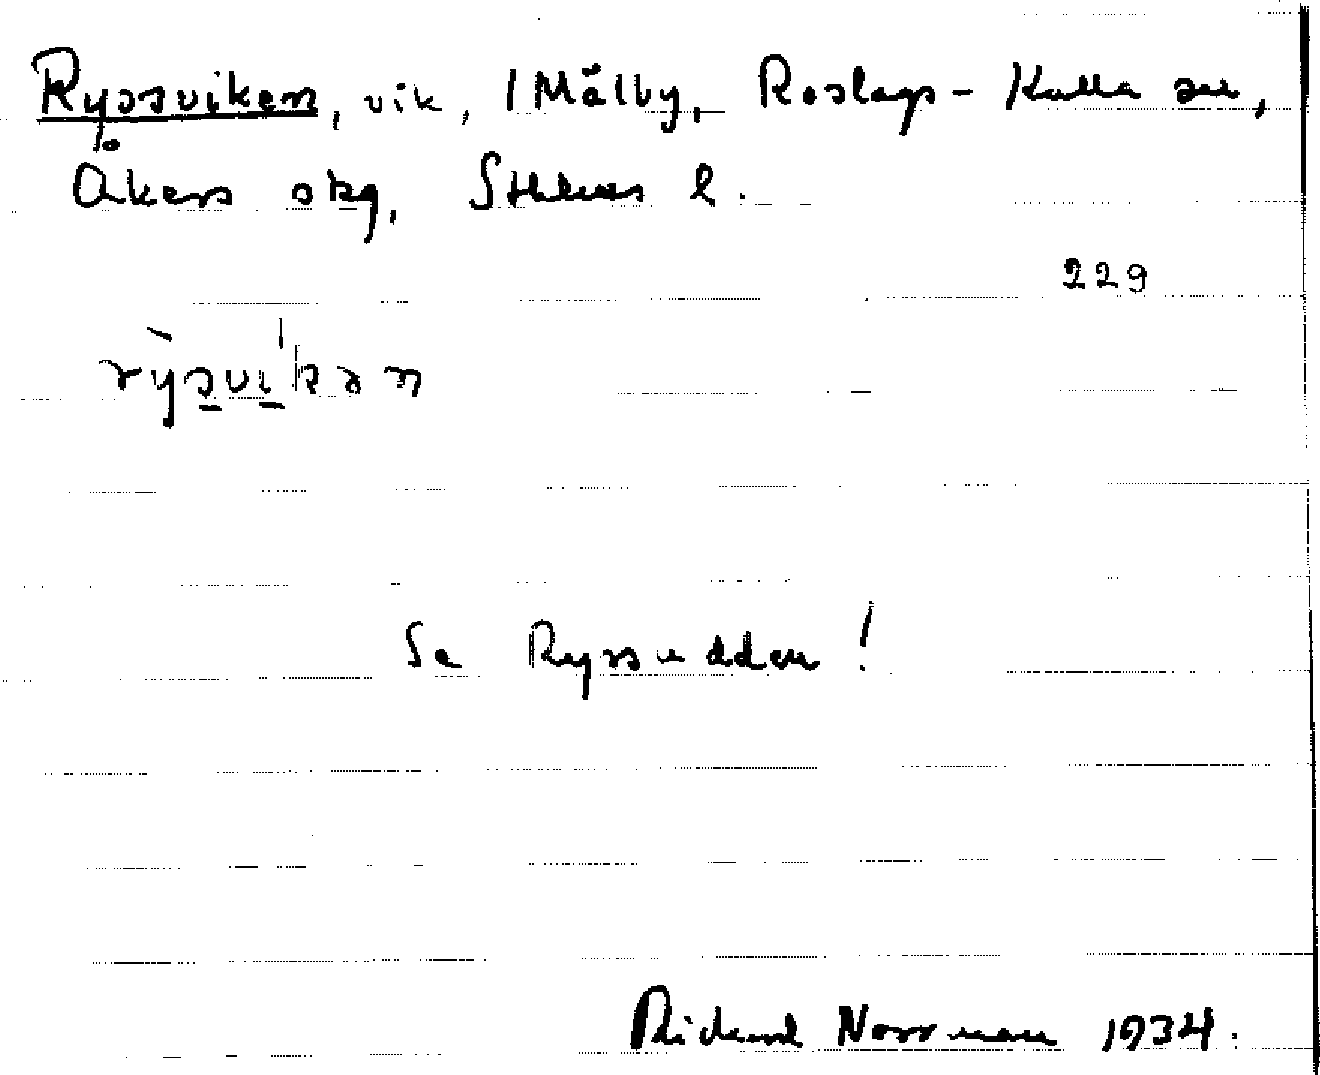 Ryssviken, vik, 1 Målby, Roslags-Kulla sn,
Åkers skg, Sthlms l.
229
rỳsvi'kən
Se Ryssudden!
Rickard Norrman 1934.